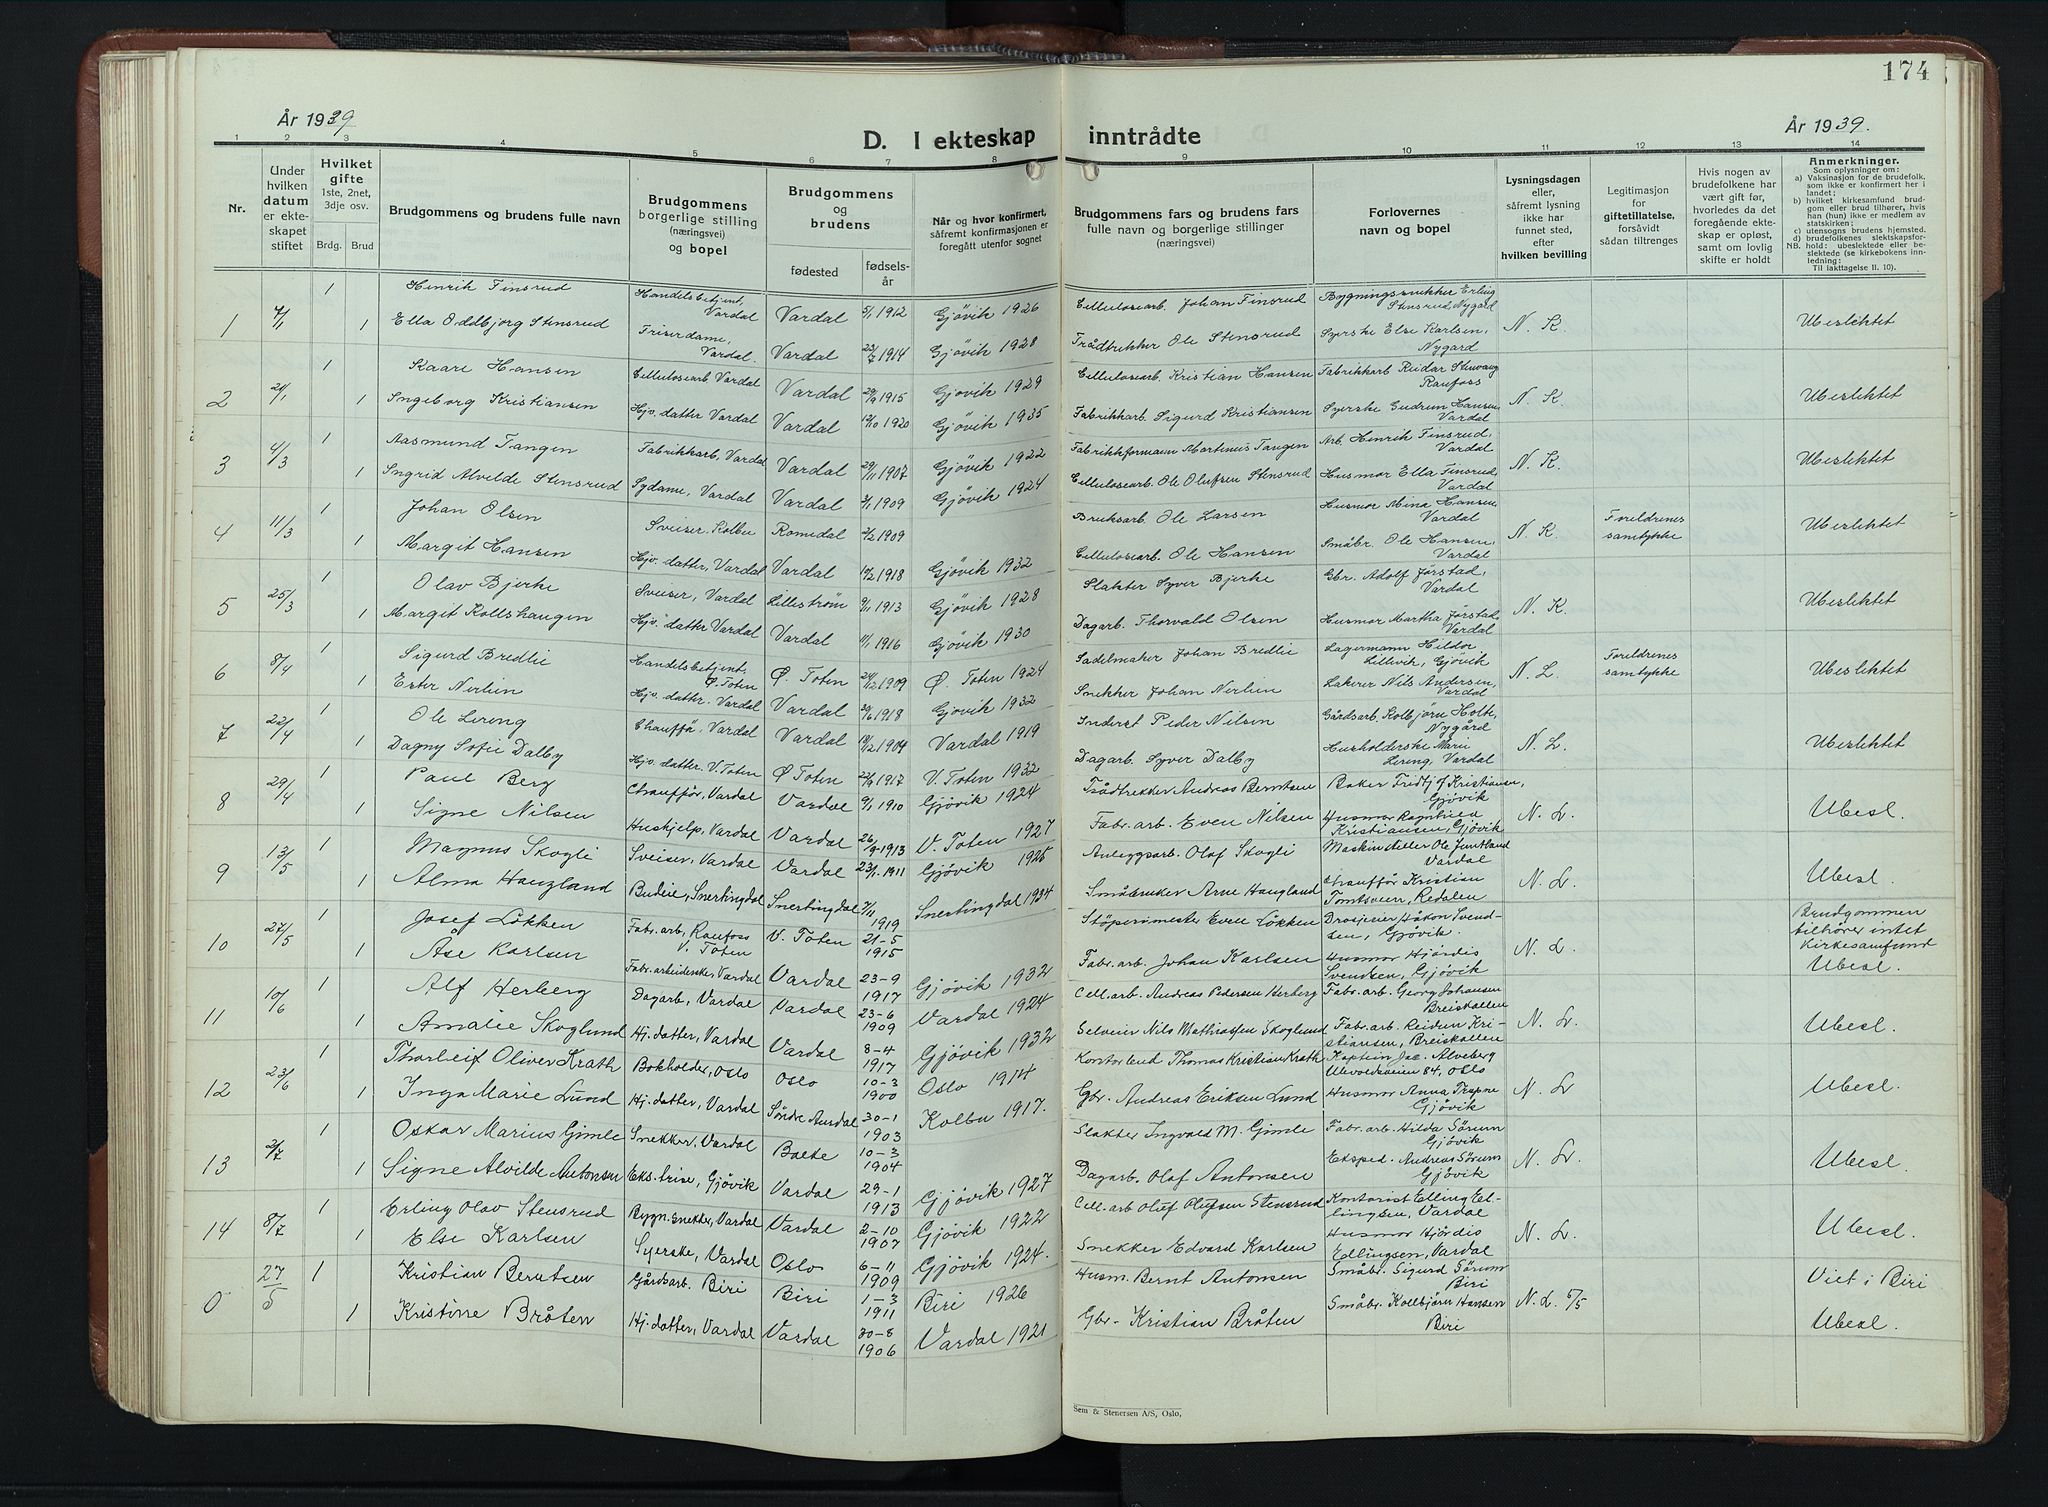 174
År 1939
D. I ekteskap inntrådte
År 1939.
1 2 3 4 5 6 7 8 9 10 11 12 13 14
Nr.
Under hvilken datum er ekteskapet stiftet
Hvilket gifte 1ste, 2net, 3dje osv.
Brdg. Brud
Brudgommens og brudens fulle navn
Brudgommens borgerlige stilling (næringsvei) og bopel
Brudgommens og brudens
fødested
fødselsår
Når og hvor konfirmert, såfremt konfirmasjonen er foregått utenfor sognet
Brudgommens fars og brudens fars fulle navn og borgerlige stillinger (næringsvei)
Forlovernes navn og bopel
Lysningsdagen eller, såfremt lysning ikke har funnet sted, efter hvilken bevilling
Legitimasjon for giftetillatelse, forsåvidt sådan tiltrenges
Hvis nogen av brudefolkene har vært gift før, hvorledes da det foregående ekteskap er opløst, samt om lovlig skifte er holdt
Anmerkninger.
Som oplysning om:
a) Vaksinasjon for de brudefolk, som ikke er konfirmert her i landet;
b) hvilket kirkesamfund brudgom eller brud tilhører, hvis han (hun) ikke er medlem av statskirken;
c) utensogns brudens hjemsted.
d) brudefolkenes slektskapsforhold: ubeslektede eller beslektede (se kirkebokens innledning:
NB.
Til iakttagelse II. 10).
1 4/1 1 Henrik Finsrud Handelsbetjent, Vardal Vardal 5/1 1912 Gjövik 1926 Cellulosearb. Johan Finsrud Bygningssnekker Erling Stensrud, Nygard N. K. Ubeslektet
1 Ella Oddbjörg Stensrud Friserdame, Vardal. Vardal 23/7 1914 Gjövik 1928 Trådtrekker Ole Stensrud Syerske Else Karlsen, Nygard
2 21/1 1 Kaare Hansen Cellulosearb. Vardal Vardal 29/9 1915 Gjövik 1929 Cellulosearb. Kristian Hansen Fabrikkarb. Reidar Stenvang Raufoss N. K. Ubeslektet
1 Ingeborg Kristiansen Hjv. datter Vardal Vardal 12/10 1920 Gjövik 1935 Fabrikkarb. Sigurd Kristiansen Syerske Gudrun Hansen, Vardal
3 4/3 1 Aasmund Tangen Fabrikkarb, Vardal Vardal 29/11 1907 Gjövik 1922 Fabrikkformann Martinus Tangen Arb. Henrik Finsrud, Vardal N. K. Ubeslektet
1 Ingrid Alvilde Stensrud Sydame, Vardal Vardal 3/1 1909 Gjövik 1924 Cellulosearb. Ole Olufsen Stensrud Husmor Ella Finsrud Vardal
4 11/3 1 Johan Olsen Sveiser. Kolbu Romedal 2/2 1909 Bruksarb. Ole Larsen Husmor Mina Hansen, Vardal N. K. Foreldrenes samtykke Ubeslektet
1 Margit Hansen Hjv. datter, Vardal Vardal 14/2 1918 Gjövik 1932 Cellulosearb. Ole Hansen Småbr. Ole Hansen, Vardal
5 25/3 1 Olav Bjerke Sveiser, Vardal Lilleström 9/11 1913 Gjövik 1928 Slakter Syver Bjerke Gbr. Adolf Jörstad, Vardal N. K. Ubeslektet
1 Margit Kollshaugen Hjv. datter Vardal Vardal 11/1 1916 Gjövik 1930 Dagarb. Thorvald Olsen Husmor Martha Jörstad, Vardal
6 8/4 1 Sigurd Bredlie Handelsbetjent, Ø. Toten Ø. Toten 24/12 1909 Ø. Toten 1924 Sadelmaker Johan Bredlie Lagermann Hildor Lillevik, Gjövik N. L. Foreldrenes samtykke Ubeslektet
1 Ester Nerlien Hjv. datter. Vardal Vardal 30/6 1918 Gjovik 1932 Snekker Johan Nerlien Lakerer Nils Andersen, Vardal
7 22/4 1 Ole Lereng Chauffø. Vardal Vardal 18/12 1904 Vardal 1919 Inderst Peder Nilsen Gårdsarb. Kolbjörn Holte, Nygård N. L. Ubeslektet
1 Dagny Sofie Dalby Hjv. datter. V. Toten Ø Toten 22/9 1917 V. Toten 1932 Dagarb. Syver Dalby Husholderske Mari Lereng, Vardal
8 29/4 1 Paul Berg Chauffør, Vardal Vardal 9/1 1910 Gjövik 1924 Trådtrekker Andreas Berntsen Baker Fridtjof Kristiansen, Gjövik N. L. Ubesl.
1 Signe Nilsen Huskjelp, Vardal Vardal 26/9 1913 V. Toten 1927 Fabr. arb. Even Nilsen Husmor Ragnhild Kristiansen, Gjövik
9 13/5 1 Magnus Skogli Sveiser, Vardal Vardal 23/1 1911 Gjövik 1925 Anleggsarb. Olaf Skogli Maskinstiller Ole Jemtland Vardal N. L. Ubesl.
1 Alma Haugland Budeie, Snertingdal Snertingdal 7/11 1919 Snertingdal 1934 Småbruker Arne Haugland Chauffør Kristian Tomtsveen, Redalen
10 27/5 1 Josef Løkken Fabr. arb, Raufoss V. Toten V. Toten 21-5 1915 Støperimester Even Løkken Drosjeeier Håkon Svendsen, Gjövik. N. L. Brudgommen tilhører intet Kirkesamfund Ubesl.
1 Åse Karlsen Fabr. arbeiderske, Vardal Vardal 23-9 1917 Gjövik 1932 Fabr. arb. Johan Karlsen Husmor Hjørdis Svendsen, Gjövik
11 10/6 1 Alf Herberg Dagarb, Vardal Vardal 23-6 1909 Vardal 1924 Cell. arb. Andreas Pedersen Herberg Fabr. arb. Georg Johansen Breiskallen N. L. Ubesl.
1 Amalie Skoglund Hj. datter, Vardal Vardal 8-4 1917 Gjövik 1932 Selveier Nils Mathiassen Skoglund Fabr. arb. Reidun Kristiansen, Breiskallen
12 23/6 1 Thorleif Oliver Krath Bokholder, Oslo Oslo 10-3 1900 Oslo 1914 Kontorbud Thomas Kristian Krath Kaptein Jac. Alveberg Ulevoldsveien 84, Oslo N. L. Ubesl.
1 Inga Marie Lund Hj. datter, Vardal Søndre Aurdal 30-1 1903 Kolbu 1917. Gbr. Andreas Eriksen Lund Husmor Anna Trapne Gjövik
13 2/7 1 Oskar Marius Gimle Snekker, Vardal 10-3 1904 Slakter Ingvald M. Gimle Fabr. arb. Hilda Sørum Gjövik N. L. Ubesl.
1 Signe Alvilde Antonsen Eks. trise, Gjövik Vardal 29-1 1913 Gjövik 1927 Dagarb. Olaf Antonsen Eksped. Andreas Sørum Gjövik
14 8/7 1 Erling Olav Stensrud Bygn. snekker, Vardal Vardal 2-10 1907 Gjövik 1922 Cell. arb Oluf Olufsen Stensrud Kontorist Elling Ellingsen, Vardal N. L. Ubesl.
1 Else Karlsen Syerske, Vardal Oslo 6-11 1909 Gjövik 1924. Snekker Edvard Karlsen Husmor Hjørdis Edlingsen, Vardal
0 27/5 1 Kristian Berntsen Gårdsarb. Biri Biri 1-3 1911 Biri 1926 Husm. Bernt Antonsen Småbr. Sigurd Sørum Biri N. L. 5/5 Viet i Biri
1 Kristine Bråten Hj. datter, Vardal Vardal 30-8 1906 Vardal 1921 Gbr. Kristian Bråten Småbr. Kollbjørn Hansen Biri Ubesl.
Sem & Stenersen A/S, Oslo.